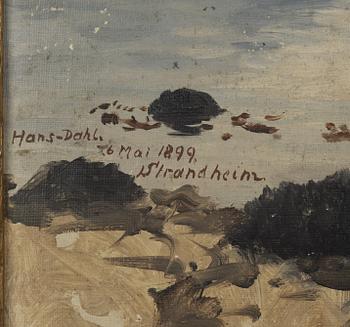 Hans-Dahl.
6 Mai 1899.
Strandheim.